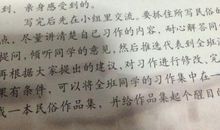 到的，亲身感受到的。
写完后先在小组里交流。要抓住所写民俗的
点，尽量讲清楚自己习作的内容，耐心解答同
提问，倾听同学的意见，然后推选代表到全班
再根据大家提出的建议，对习作进行修改，完
果有条件，可以将全班同学的习作集中在一
成一本民俗作品集，并给作品集起个醒目的